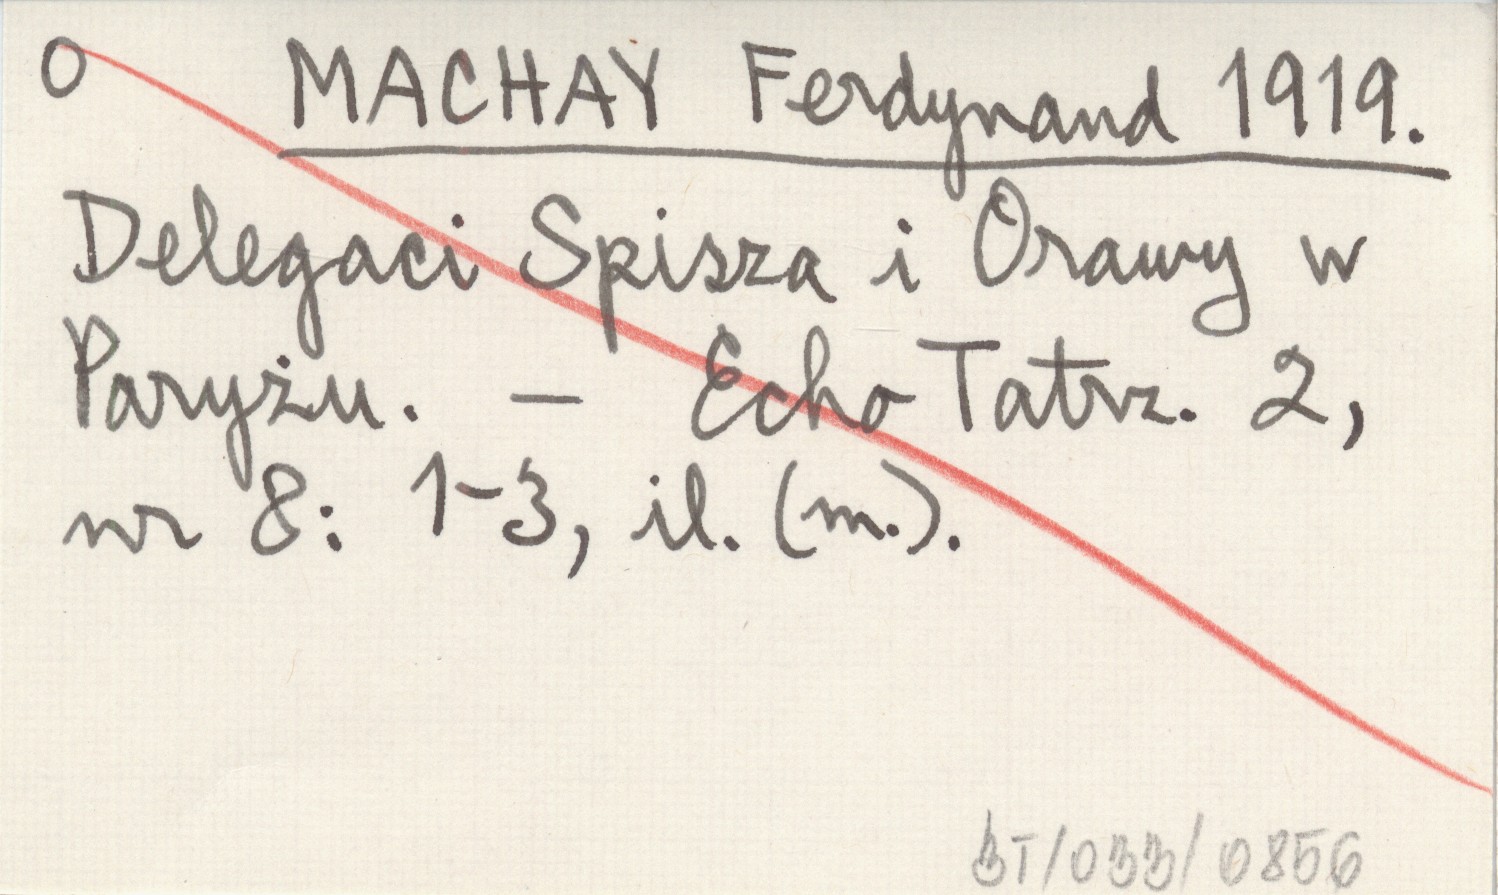 O MACHAY Ferdynand 1919.
Delegaci Spisza i Orawy w
Paryżu. - Echo Tatrz. 2,
nr 8: 1-3, il. (m.).
BT/033/0856